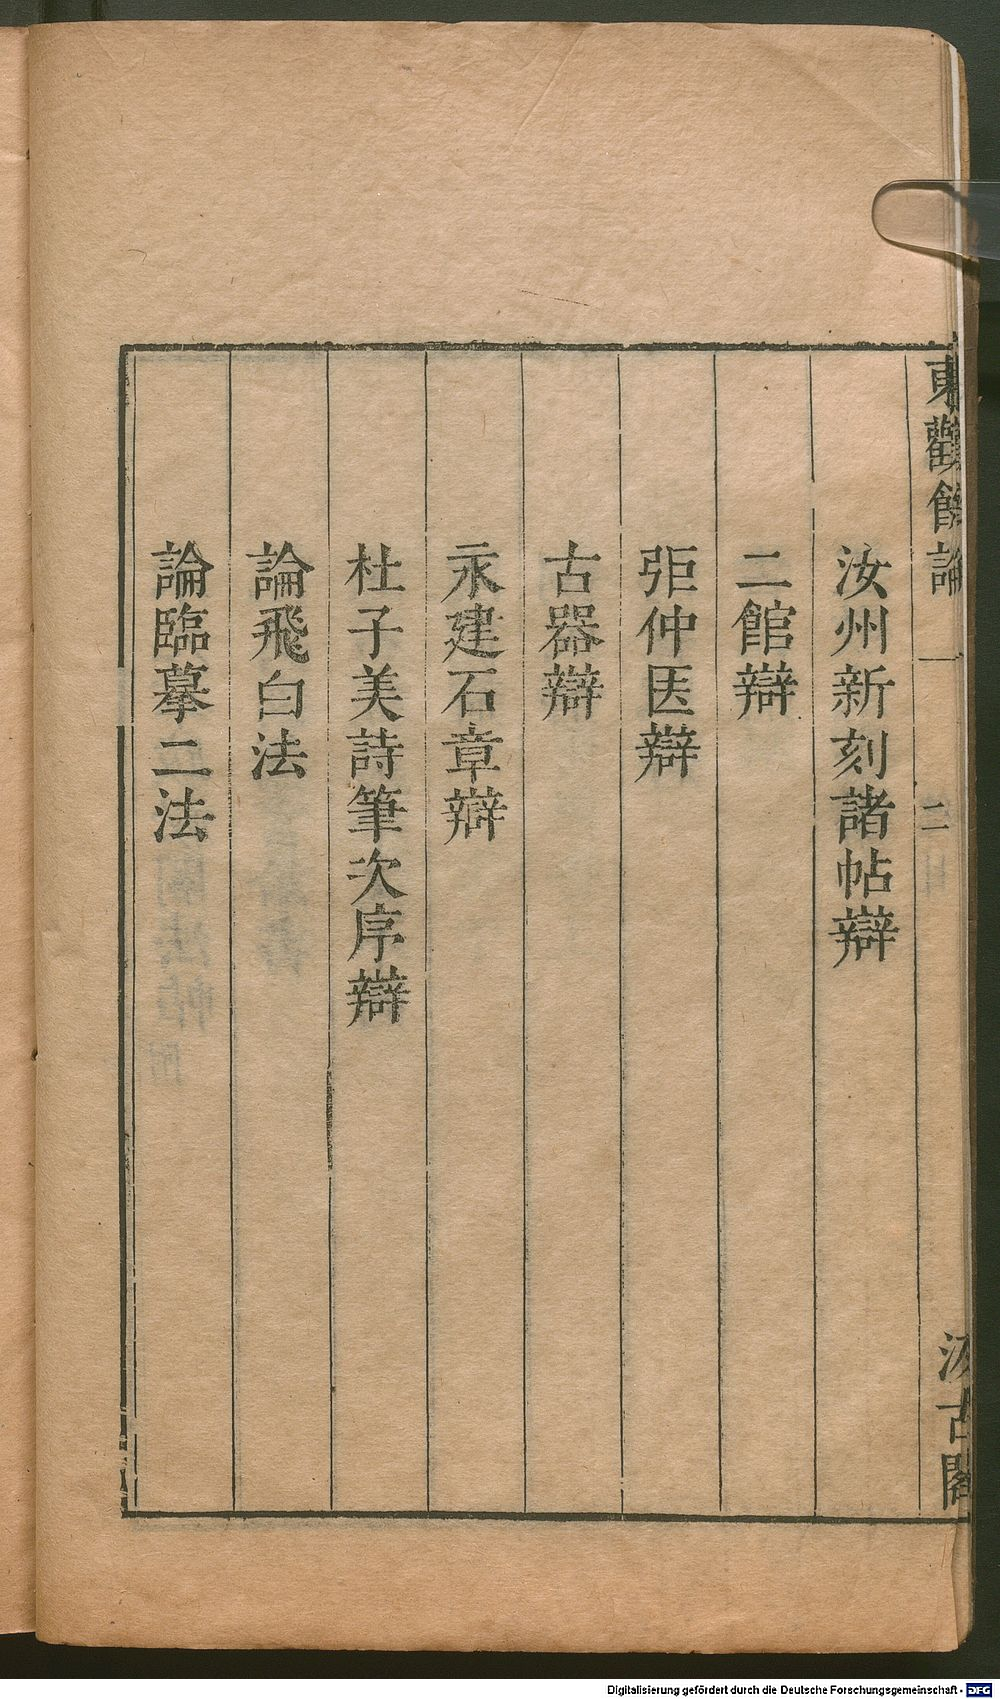 東觀餘論
二
汲古閣
汝州新刻諸帖辯
二館辯
弡仲医辯
古器辯
永建石章辯
杜子美詩筆次序辯
論飛白法
論臨摹二法
Digitalisierung gefördert durch die Deutsche Forschungsgemeinschaft - DFG